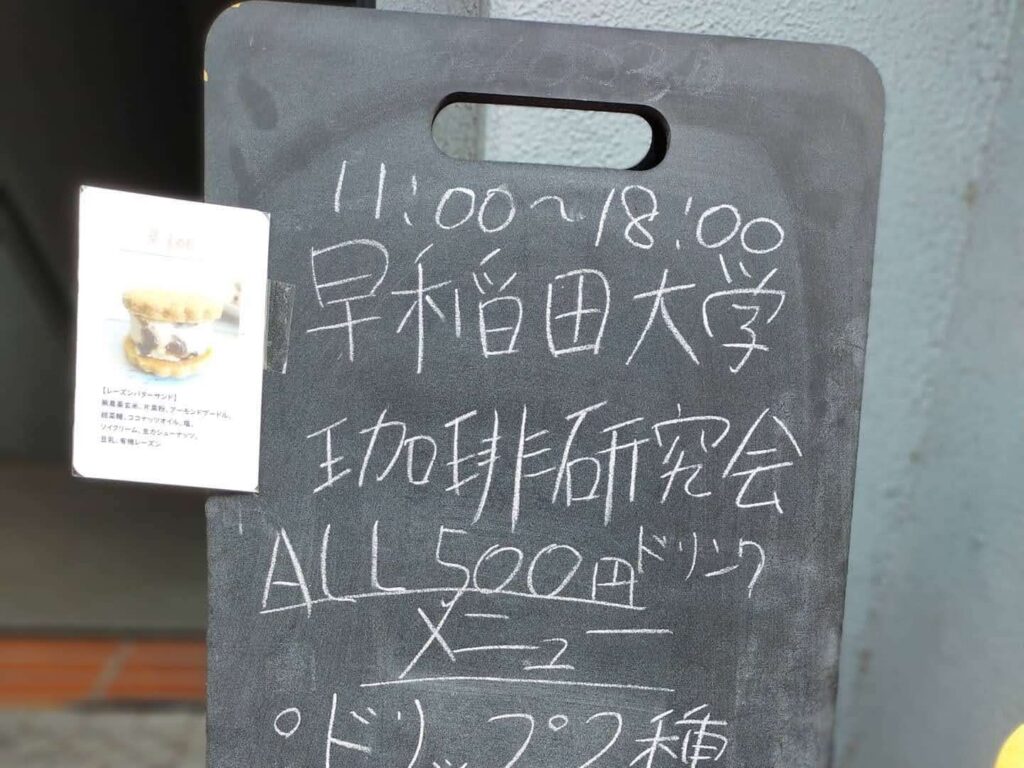 11:00～18:00
早稲田大学
珈琲研究会
ALL500円ドリンク
メニュー
°ドリップ2種
【レーズンバターサンド】
無農薬玄米、片栗粉、アーモンドプードル、
甜菜糖、ココナッツオイル、塩、
ソイクリーム、生カシューナッツ、
豆乳、有機レーズン